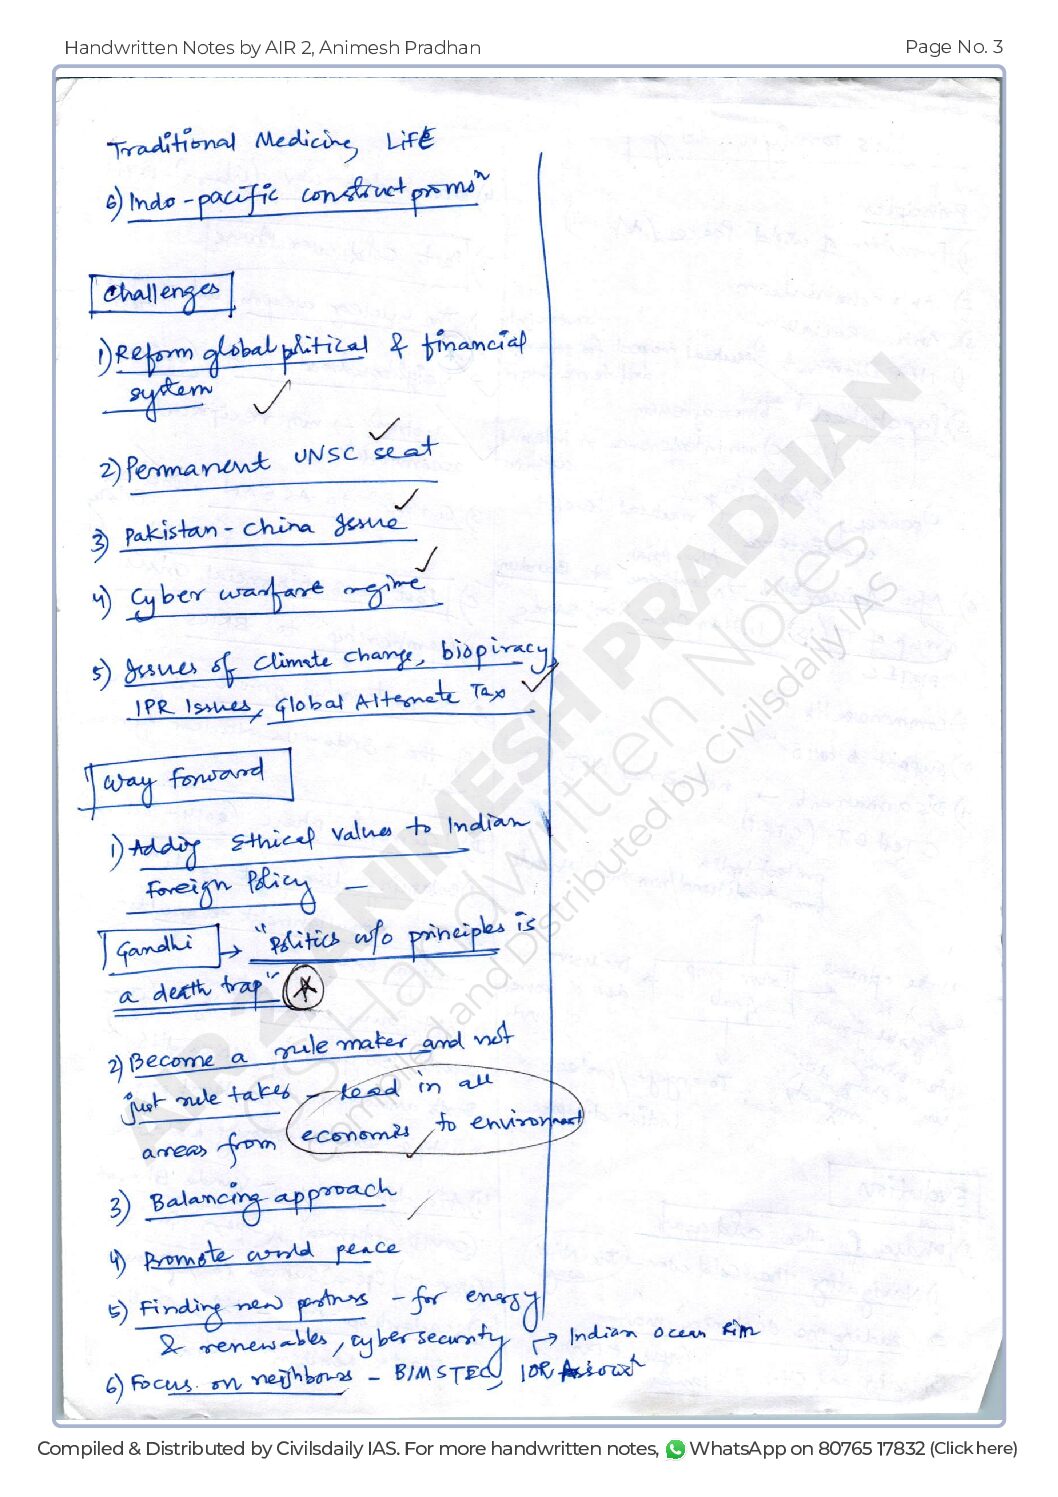 Handwritten Notes by AIR 2, Animesh Pradhan
Page No. 3
Traditional Medicine, LiFE
6) Indo-pacific construct promoⁿ
Challenges
1) Reform global political & financial
system
2) Permanent UNSC seat
3) Pakistan-China Issue
4) Cyber warfare regime
5) Issues of Climate change, biopiracy,
IPR Issues, Global Alternate Tax
Way forward
1) Adding Ethical values to Indian
Foreign Policy —
Gandhi → "Politics w/o principles is
a death trap"
2) Become a rule maker and not
just rule taker - Lead in all
areas from economics to environment
3) Balancing approach
4) Promote world peace
5) Finding new partners - for energy
& renewables, cybersecurity → Indian ocean Rim
6) Focus on neighbours - BIMSTEC, IOR Associⁿ
AIR 2 ANIMESH PRADHAN
Handwritten Notes
Compiled and Distributed by Civilsdaily IAS
Compiled & Distributed by Civilsdaily IAS. For more handwritten notes, WhatsApp on 80765 17832 (Click here)